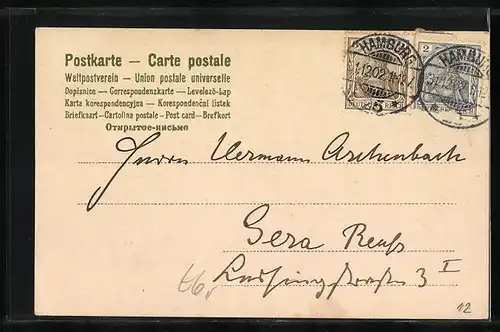 Postkarte — Carte postale
Weltpostverein — Union postale universelle
Dopisnice — Correspondenzkarte — Levelező-Lap
Karta korespondencyjna — Korespondenční lístek
Briefkaart - Cartolina postale - Post card - Brefkort
Открытое-письмо
HAMBURG
5
HAMBURG
2
Herrn Hermann Aschenbach
Gera Reuß
3 I
12